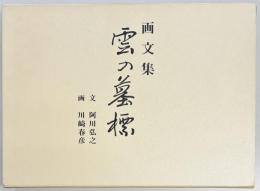 画文集
雲の墓標
文 阿川弘之
画 川崎春彦